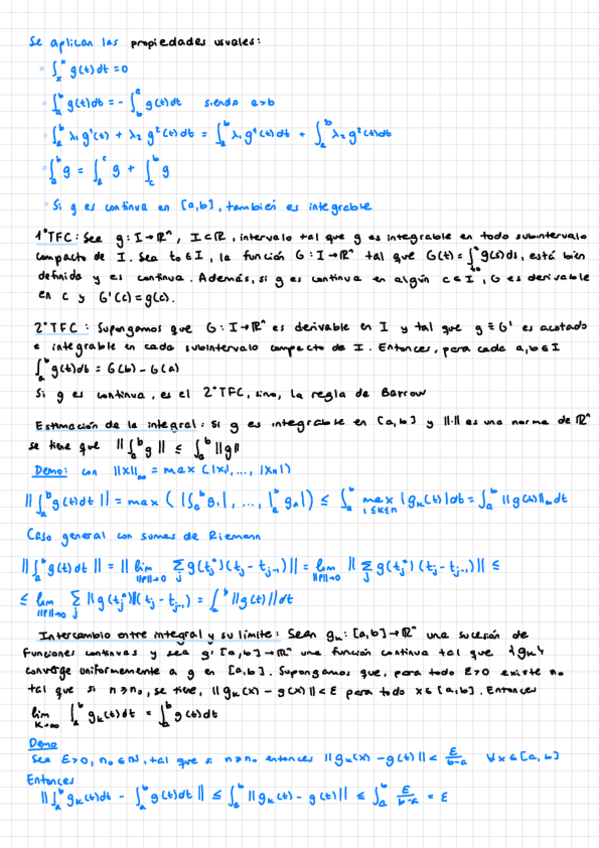 Se aplican las propiedades usuales:
• ∫ₓˣ g(t)dt = 0
• ∫ₐᵇ g(t)dt = - ∫_b^a g(t)dt siendo a>b
• ∫ₐᵇ λ₁g¹(t) + λ₂g²(t)dt = ∫ₐᵇ λ₁g¹(t)dt + ∫ₐᵇ λ₂g²(t)dt
• ∫ₐᵇ g = ∫ₐᶜ g + ∫_c^b g
• Si g es continua en [a,b], también es integrable
1ºTFC: Sea g: I→ℝⁿ, I⊂ℝ, intervalo tal que g es integrable en todo subintervalo
compacto de I. Sea t₀∈I, la función G: I→ℝⁿ tal que G(t)=∫_{t₀}^t g(s)ds, está bien
definida y es continua. Además, si g es continua en algún c∈I, G es derivable
en c y G'(c)=g(c).
2ºTFC: Supongamos que G: I→ℝⁿ es derivable en I y tal que g≡G' es acotado
e integrable en cada subintervalo compacto de I. Entonces, para cada a,b∈I
∫ₐᵇ g(t)dt = G(b) - G(a)
Si g es continua, es el 2ºTFC, sino, la regla de Barrow
Estimación de la integral: Si g es integrable en [a,b] y ||·|| es una norma de ℝⁿ
se tiene que ||∫ₐᵇ g|| ≤ ∫ₐᵇ ||g||
Demo: con ||x||∞ = max(|x₁|, ..., |xₙ|)
||∫ₐᵇ g(t)dt|| = max(|∫ₐᵇ g₁|, ..., |∫ₐᵇ gₙ|) ≤ ∫ₐᵇ max_{1≤k≤n} |g_k(t)|dt = ∫ₐᵇ ||g(t)||∞ dt
Caso general con sumas de Riemann
||∫ₐᵇ g(t)dt|| = || lim_{||P||→0} Σ_j g(t_j*)(t_j - t_{j-1})|| = lim_{||P||→0} || Σ_j g(t_j*)(t_j - t_{j-1})|| ≤
≤ lim_{||P||→0} Σ_j ||g(t_j*)||(t_j - t_{j-1}) = ∫ₐᵇ ||g(t)||dt
Intercambio entre integral y su límite: Sean g_k: [a,b]→ℝⁿ una sucesión de
funciones continuas y sea g: [a,b]→ℝⁿ una función continua tal que {g_k}
converge uniformemente a g en [a,b]. Supongamos que, para todo ε>0 existe n₀
tal que si n≥n₀, se tiene, ||g_k(x) - g(x)|| < ε para todo x∈[a,b]. Entonces
lim_{k→∞} ∫ₐᵇ g_k(t)dt = ∫ₐᵇ g(t)dt
Demo
Sea ε>0, n₀∈ℕ, tal que si n≥n₀ entonces ||g_k(x) - g(t)|| < ε/(b-a) ∀x∈[a,b]
Entonces
||∫ₐᵇ g_k(t)dt - ∫ₐᵇ g(t)dt|| ≤ ∫ₐᵇ ||g_k(t) - g(t)|| ≤ ∫ₐᵇ ε/(b-a) = ε